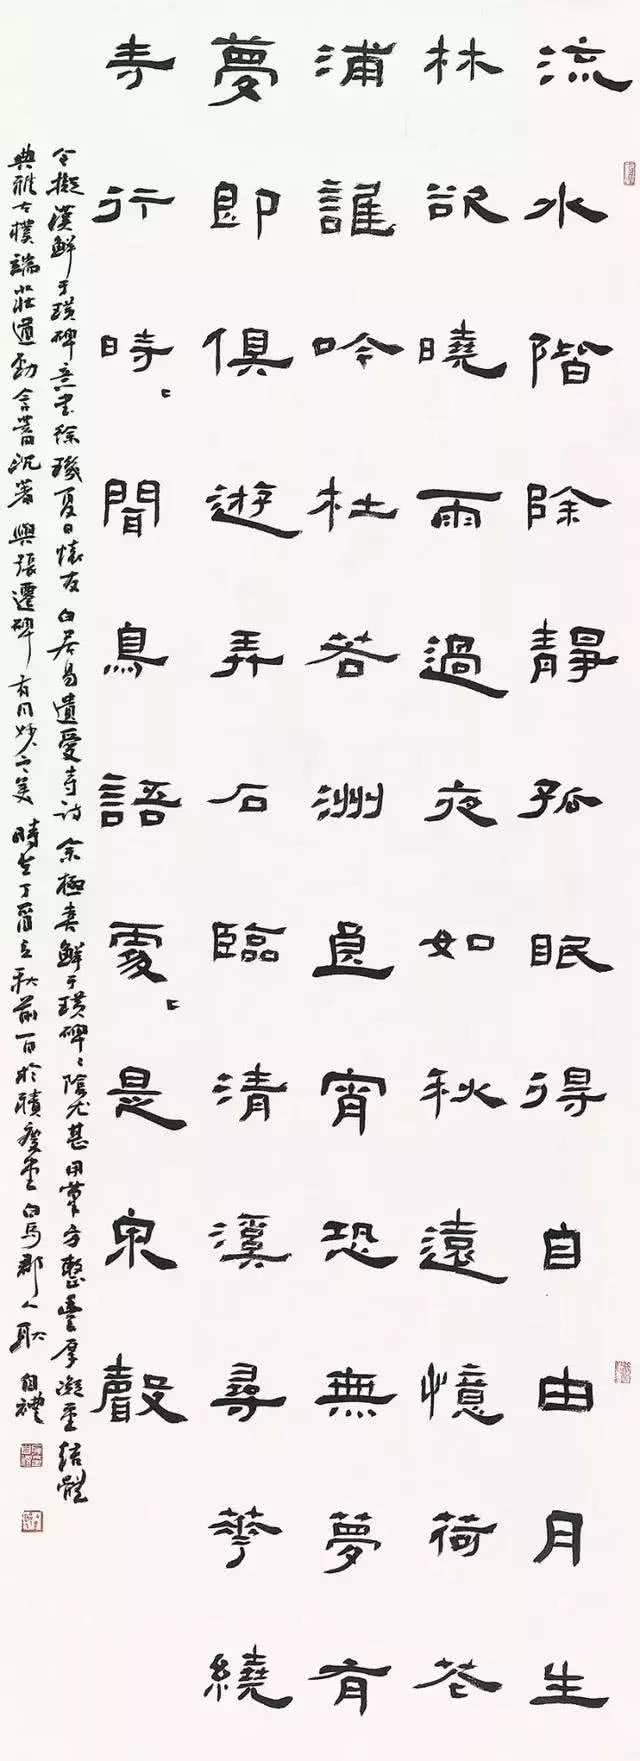 流水階除靜孤眠得自由月生
林欲曉雨過夜如秋遠憶荷花
浦誰吟杜若洲良宵恐無夢有
夢即俱遊弄石臨清溪尋花繞
寺行時〻聞鳥語處〻是泉聲
今擬漢鮮于璜碑意書徐璣夏日懷友白居易遺愛寺詩余極喜鮮于璜碑〻陰尤甚用筆方整豐厚凝重結體
典雅古樸端莊遒勁含蓄沉著與張遷碑有同妙之美時在丁酉立秋前一日於積慶堂白馬郡人耿自禮